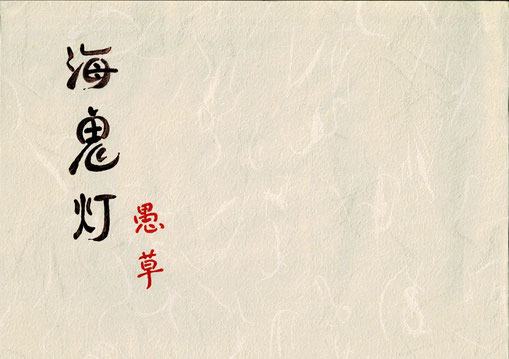 海鬼灯
愚草